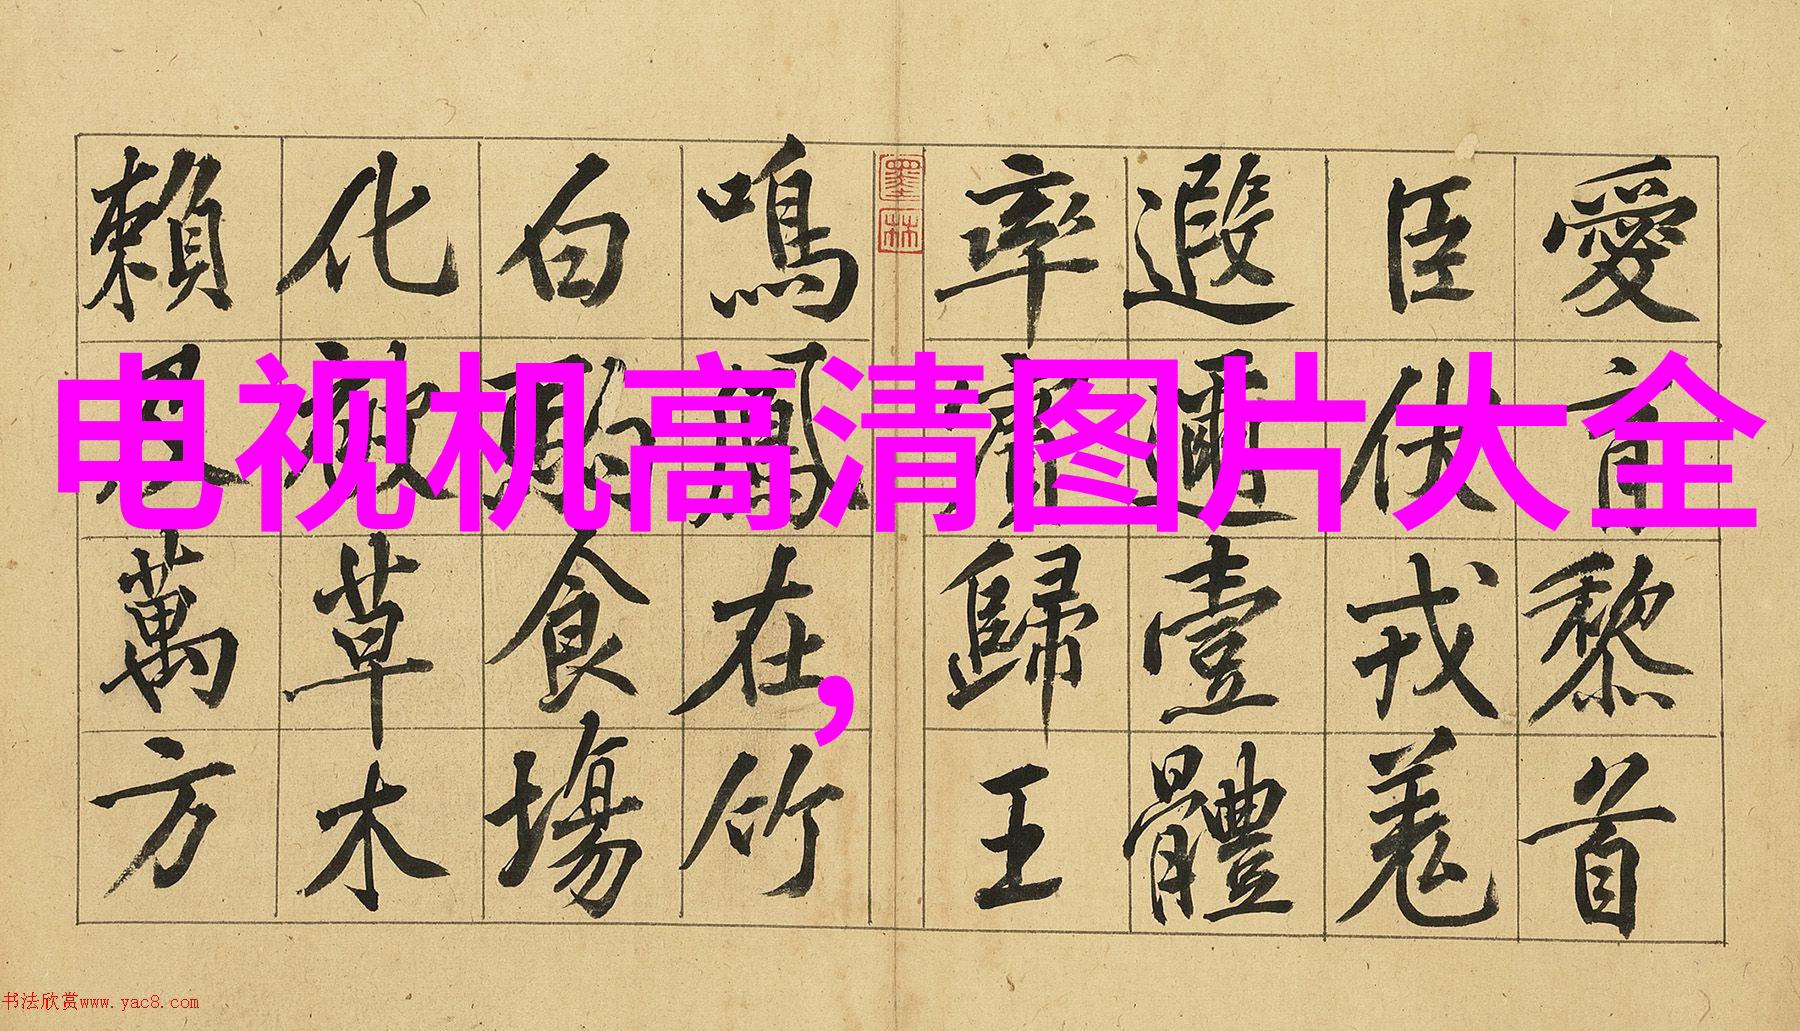 愛育黎首
臣伏戎羗
遐邇壹體
率賓歸王
墨林
鳴鳳在竹
白駒食塲
化被草木
賴及萬方
电视机高清图片大全
,
书法欣赏www.yac8.com